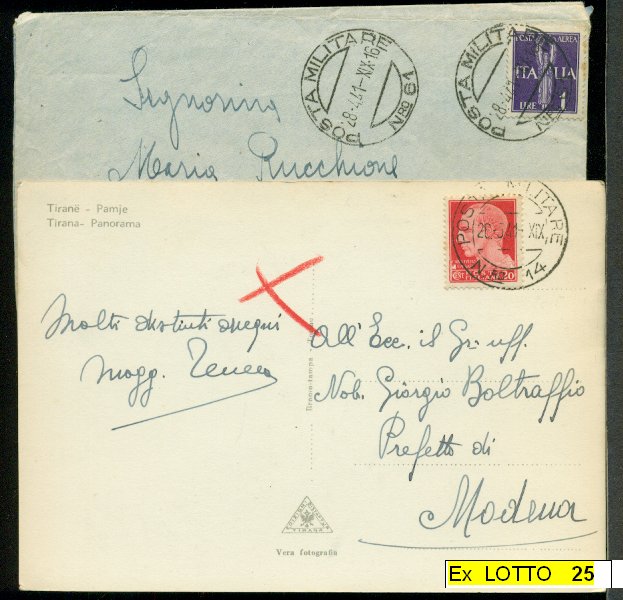 POSTA MILITARE
28.4.41-XIX.16
N RO 19
POSTA MILITARE
28.4.41
N
POSTA AEREA
ITALIA
LIRE 1
Signorina
Maria
Tiranë - Pamje
Tirana- Panorama
POSTA MILITARE
XIX
N RO 14
20
Molti distinti ossequi
magg.
All'Ecc. il Gr. uff.
Nob. Giorgio Boltraffio
Prefetto di
Modena
TIRANA
Vera fotografia
Ex LOTTO 25